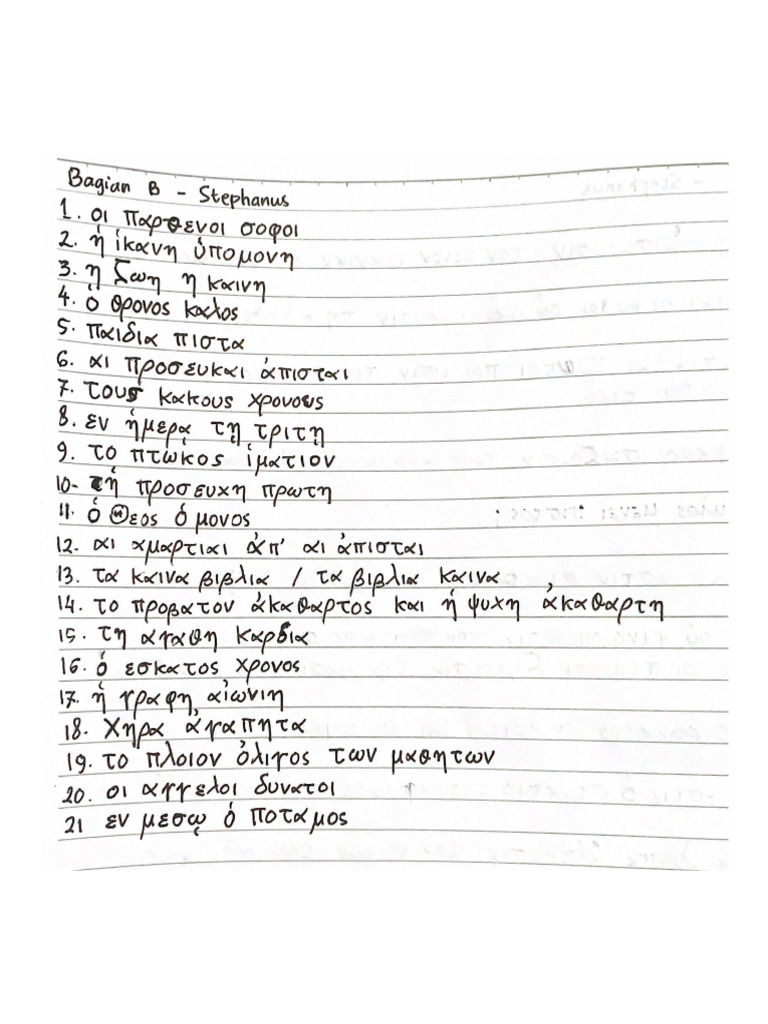 Bagian B - Stephanus
1. οι παρθενοι σοφοι
2. ἡ ἱκανη ὑπομονη
3. η ζωη η καινη
4. ὁ θρονος καλος
5. παιδια πιστα
6. αι προσευκαι ἀπισται
7. τους κακους χρονους
8. εν ἡμερᾳ τῃ τριτῃ
9. το πτωκος ἱματιον
10- ἡ προσευχη πρωτη
11. ὁ Θεος ὁ μονος
12. αι αμαρτιαι ἀπ' αι ἀπισται
13. τα καινα βιβλια / τα βιβλια καινα
14. το προβατον ἀκαθαρτος και ἡ ψυχη ἀκαθαρτη
15. τη αγαθη καρδια
16. ὁ εσκατος χρονος
17. ἡ γραφη αἰωνιη
18. Χηρα ἀγαπητα
19. το πλοιον ὀλιγος των μαθητων
20. οι αγγελοι δυνατοι
21 εν μεσῳ ὁ ποταμος